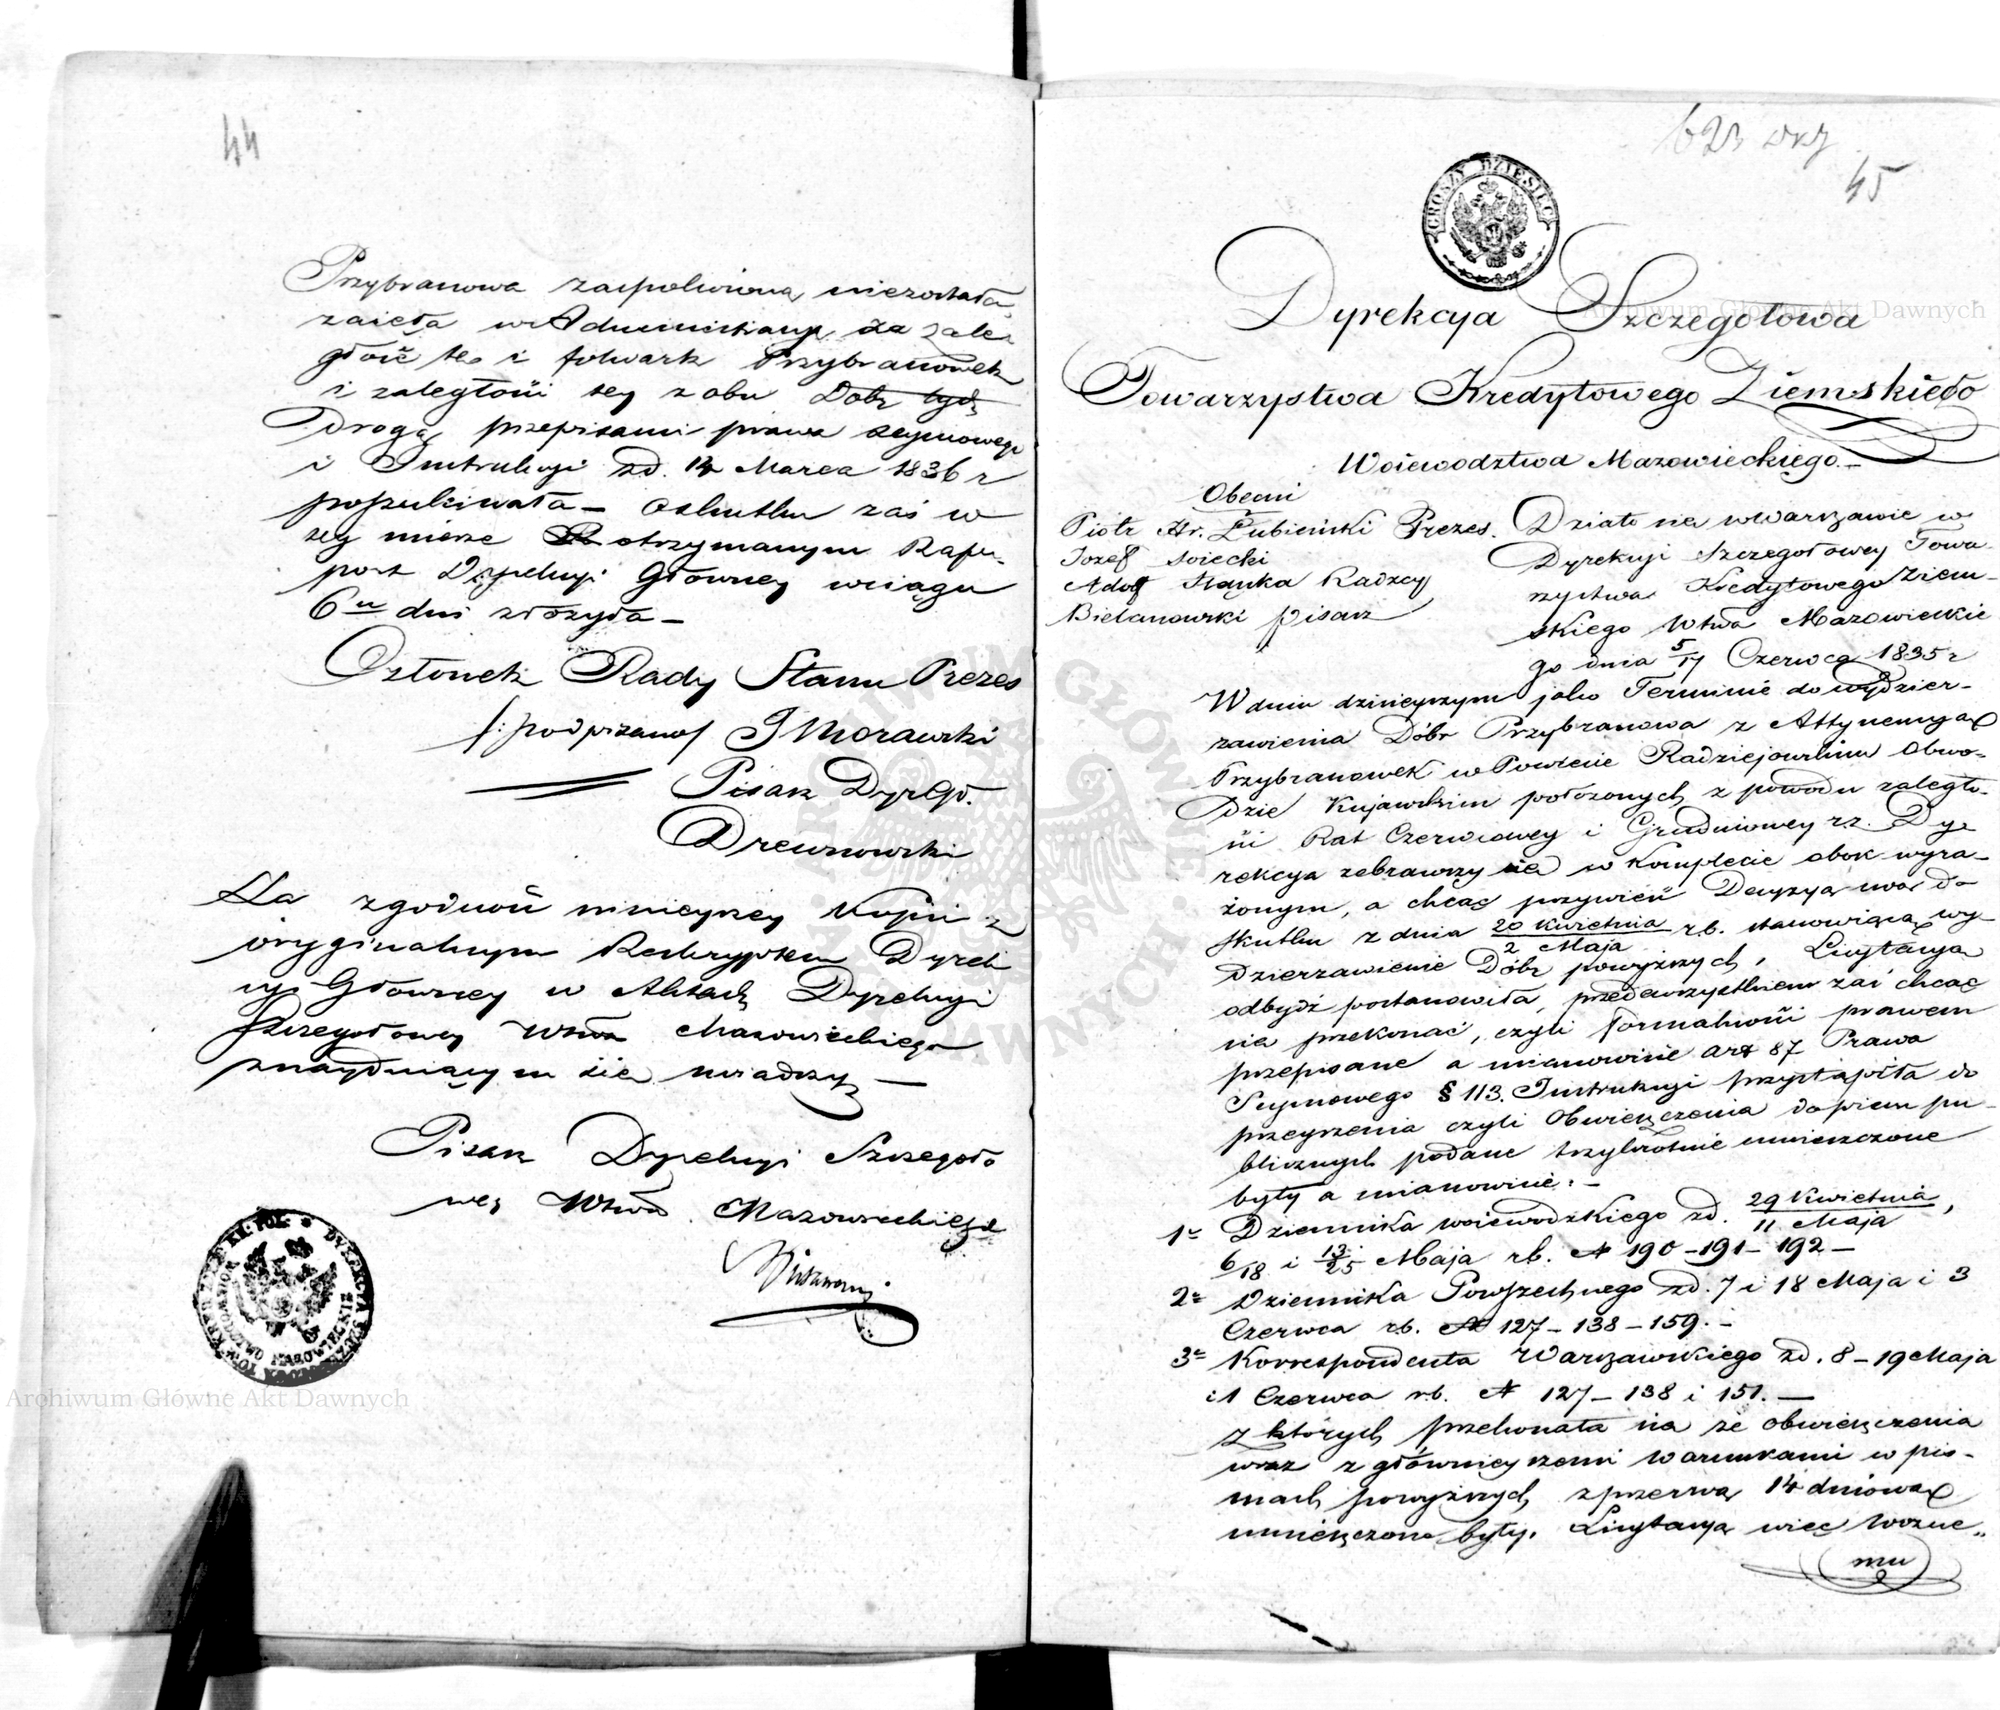 44
Przybranowa zaspokoioną niezostała
zaięła w Administracyą za zale-
głość tę i folwark Przybranówek
i zaległości tey z obu Dóbr tych
Drogą przepisami prawa seymowego
i Instrukcyi zd. 14 Marca 1836 r
poszukiwała – o skutku zaś w
tey mierze otrzymanym Rap-
port Dyrekcyi Główney wciągu
6u dni złożyła –
Członek Rady Stanu Prezes
/:podpisano/ J Morawski
Pisarz Dyr. Gł.
Drewnowski
Za zgodność ninieyszey kopii z
oryginalnym Reskryptem Dyrek
cyi Główney w Aktach Dyrekcyi
Szczegołowey Wtwa Mazowieckiego
znayduiącym się świadczy –
Pisarz Dyrekcyi Szczegoło
wey Wtwa Mazowieckiego
DYREKCIA SZCZEGÓŁOWA
WOIEWÓDZTWO MAZOWIECKIE
45
GROSZY DZIESIĘĆ
Dyrekcya Szczegołowa
Towarzystwa Kredytowego Ziemskiego
Woiewodztwa Mazowieckiego. –
Obecni
Piotr Hr. Łubieński Prezes.
Jozef Soiecki
Adolf Słąnka Radzcy
Bielanowski Pisarz
Działo się w Warszawie w
Dyrekcyi Szczegołowey Towa-
rzystwa Kredytowego Ziem-
skiego Wtwa Mazowieckie
go dnia 5/17 Czerwca 1835 r
W dniu dzisieyszym jako Terminie do wydzier-
zawienia Dóbr Przybranowa z Attynencyą
Przybranowek w Powiecie Radziejowskim Obwo-
dzie Kujawskim położonych z powodu zaległo-
ści Rat Czerwcowey i Grudniowey r.z. Dy-
rekcya zebrawszy się w komplecie obok wyra-
żonym, a chcąc przywieść Decyzyą swą do
skutku z dnia 20 Kwietnia / 2 Maja r.b. stanowiącą wy-
dzierzawienie Dóbr powyższych, Licytacyą
odbydź postanowiła, przedewszystkiem zaś chcąc
się przekonać, czyli formalności prawem
przepisane a mianowicie art 87 Prawa
Seymowego § 113. Instrukcyi przystąpiła do
przeyrzenia czyli Obwieszczenia do pism pu-
blicznych podane trzykrotnie umieszczone
były a mianowicie: –
1e Dziennika woiewodzkiego zd. 29 Kwietnia / 11 Maja,
6/18 i 13/25 Maja r.b. N 190 – 191 – 192 –
2e Dziennika Powszechnego zd. 7 i 18 Maja i 3
Czerwca r.b. N 127 – 138 – 159. –
3e Korrespondenta Warszawskiego zd. 8 – 19 Maja
i 1 Czerwca r.b. N 127 – 138 i 151. –
z których przekonała się że obwieszczenia
wraz z głównieyszemi warunkami w pis-
mach powyższych z przerwą 14 dniową
umieszczone były. Licytacyą więc Wozne-
mu
Archiwum Główne Akt Dawnych
Archiwum Główne Akt Dawnych